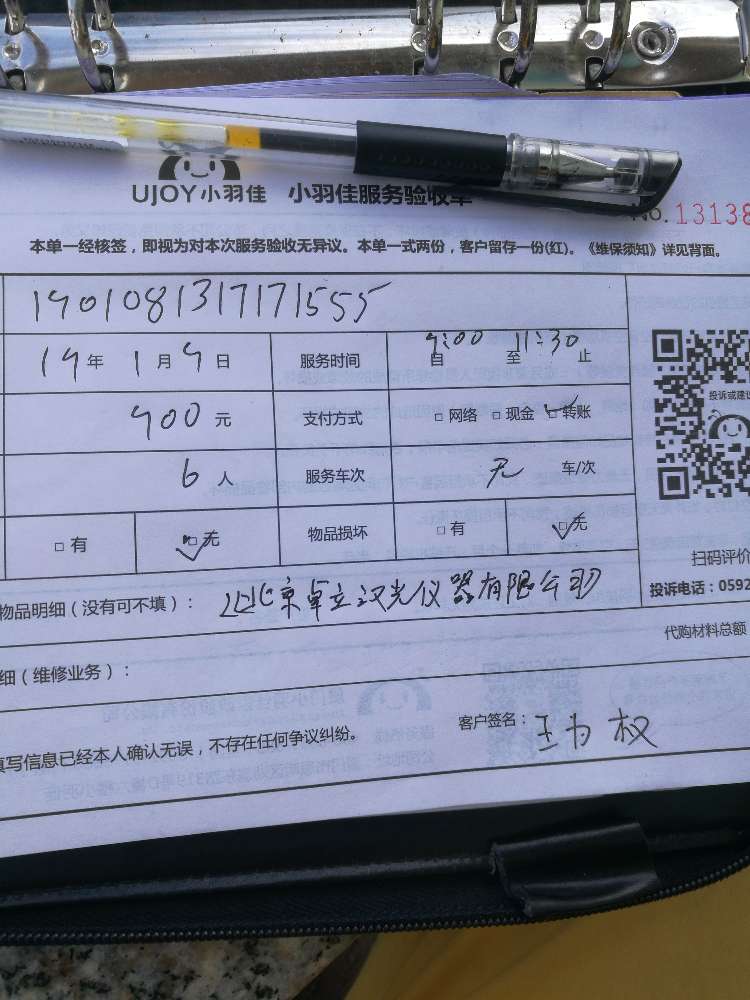 UJOY小羽佳 小羽佳服务验收单
No.13138
本单一经核签，即视为对本次服务验收无异议。本单一式两份，客户留存一份(红)。《维保须知》详见背面。
1901081317171555
19年 1月9日 服务时间 自 9:00 至 11:30 止
900元 支付方式 □网络 □现金 □转账
投诉或建议
6人 服务车次 无 车/次
□有 □无 物品损坏 □有 □无
扫码评价
物品明细（没有可不填）： 北京卓立汉光仪器有限公司
投诉电话：0592
代购材料总额
细（维修业务）：
填写信息已经本人确认无误，不存在任何争议纠纷。
客户签名：王 权